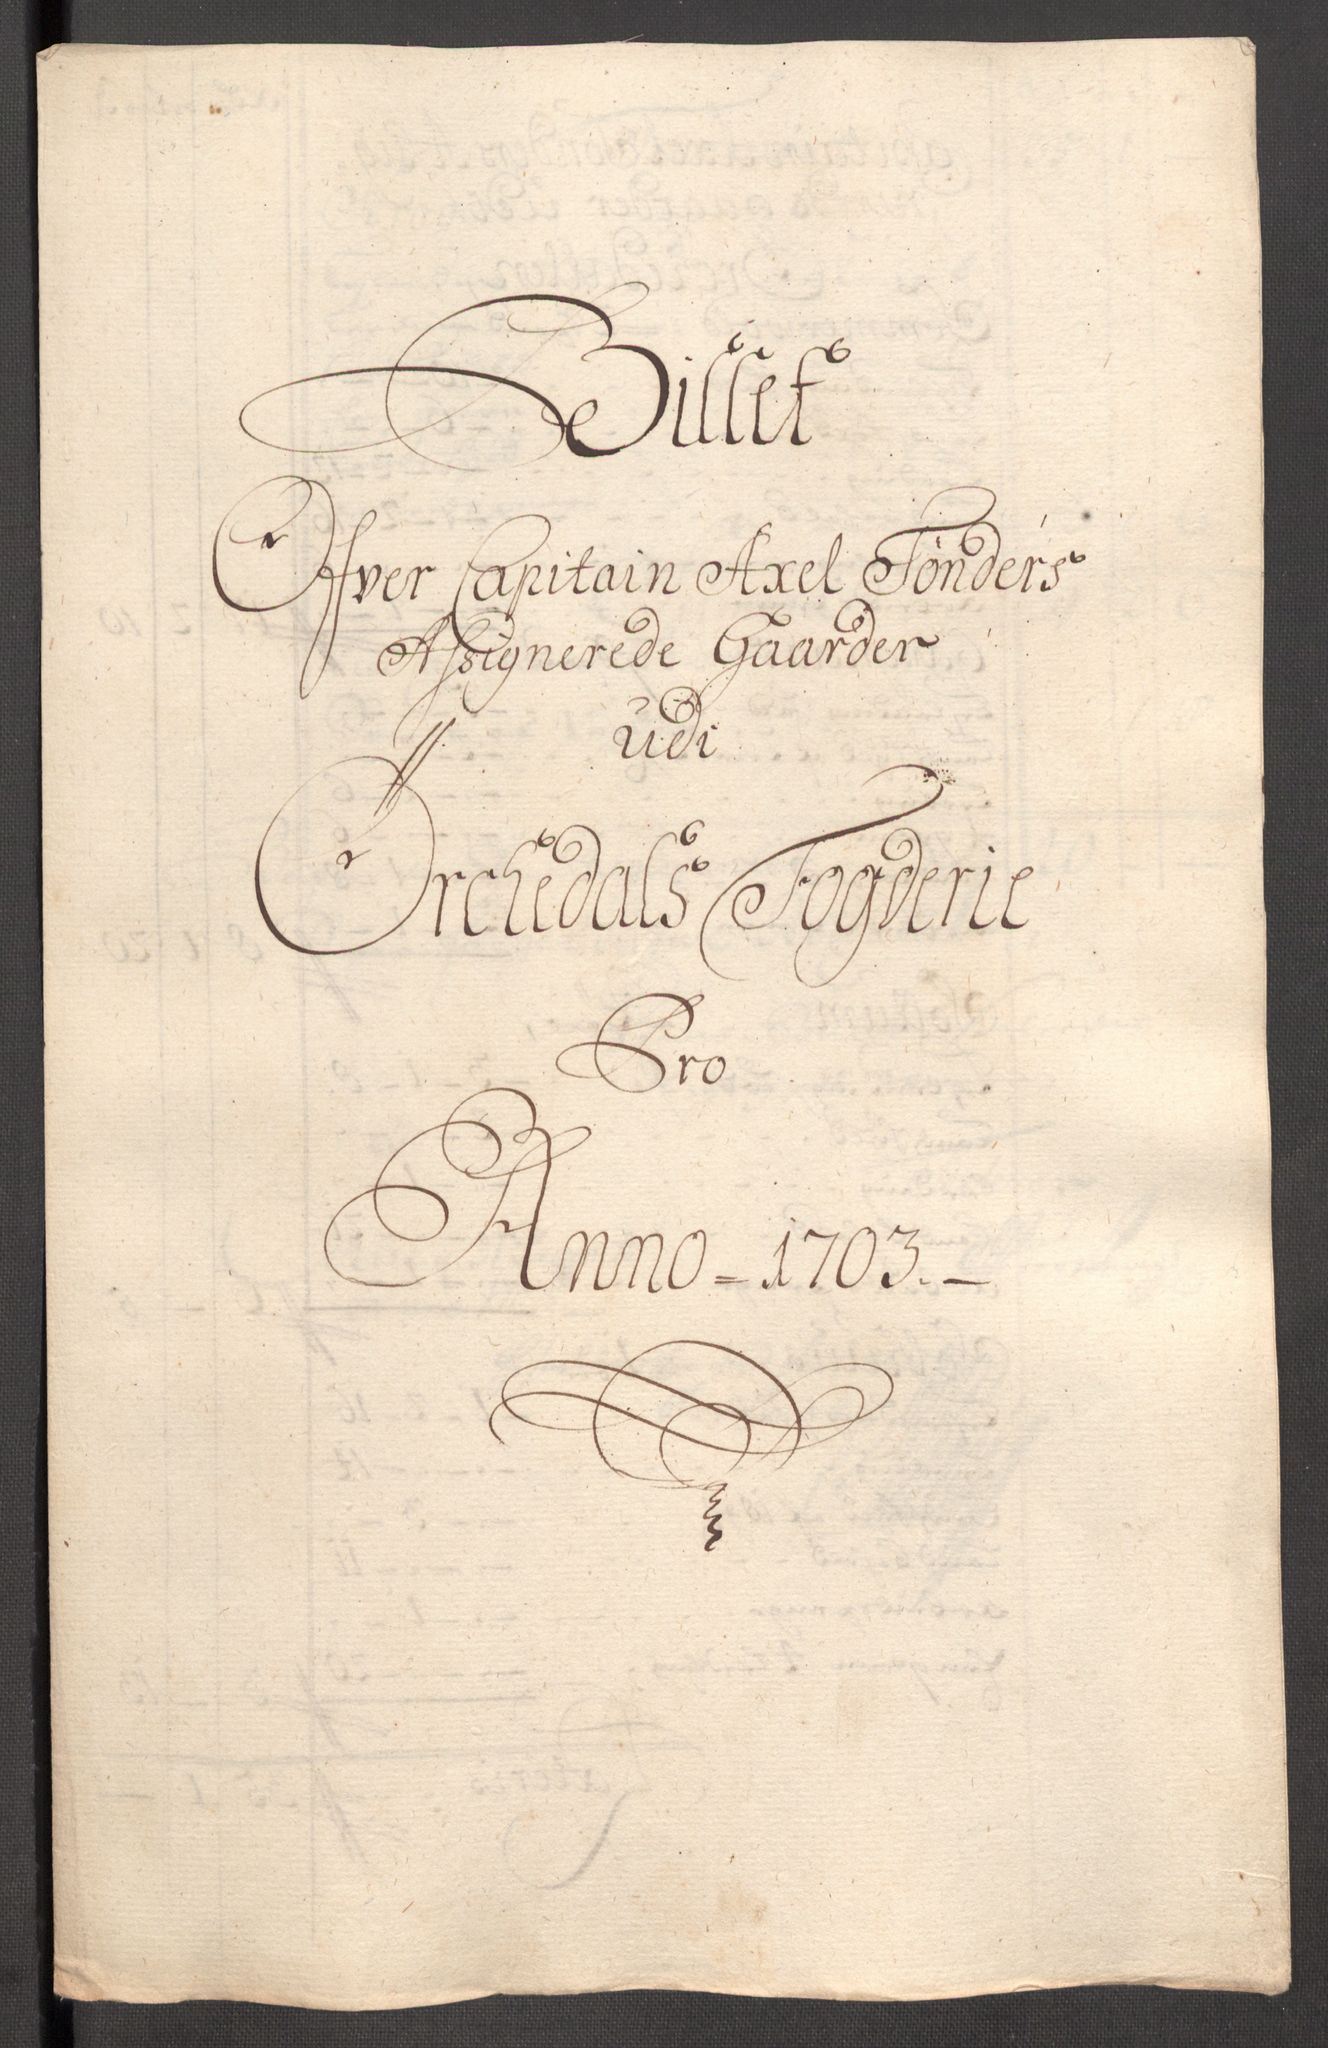 Billet
Ofver Capitain Axel Tønders
Assignerede Gaarder
udi
Orchedals Fogderie
Pro
Anno = 1703. –